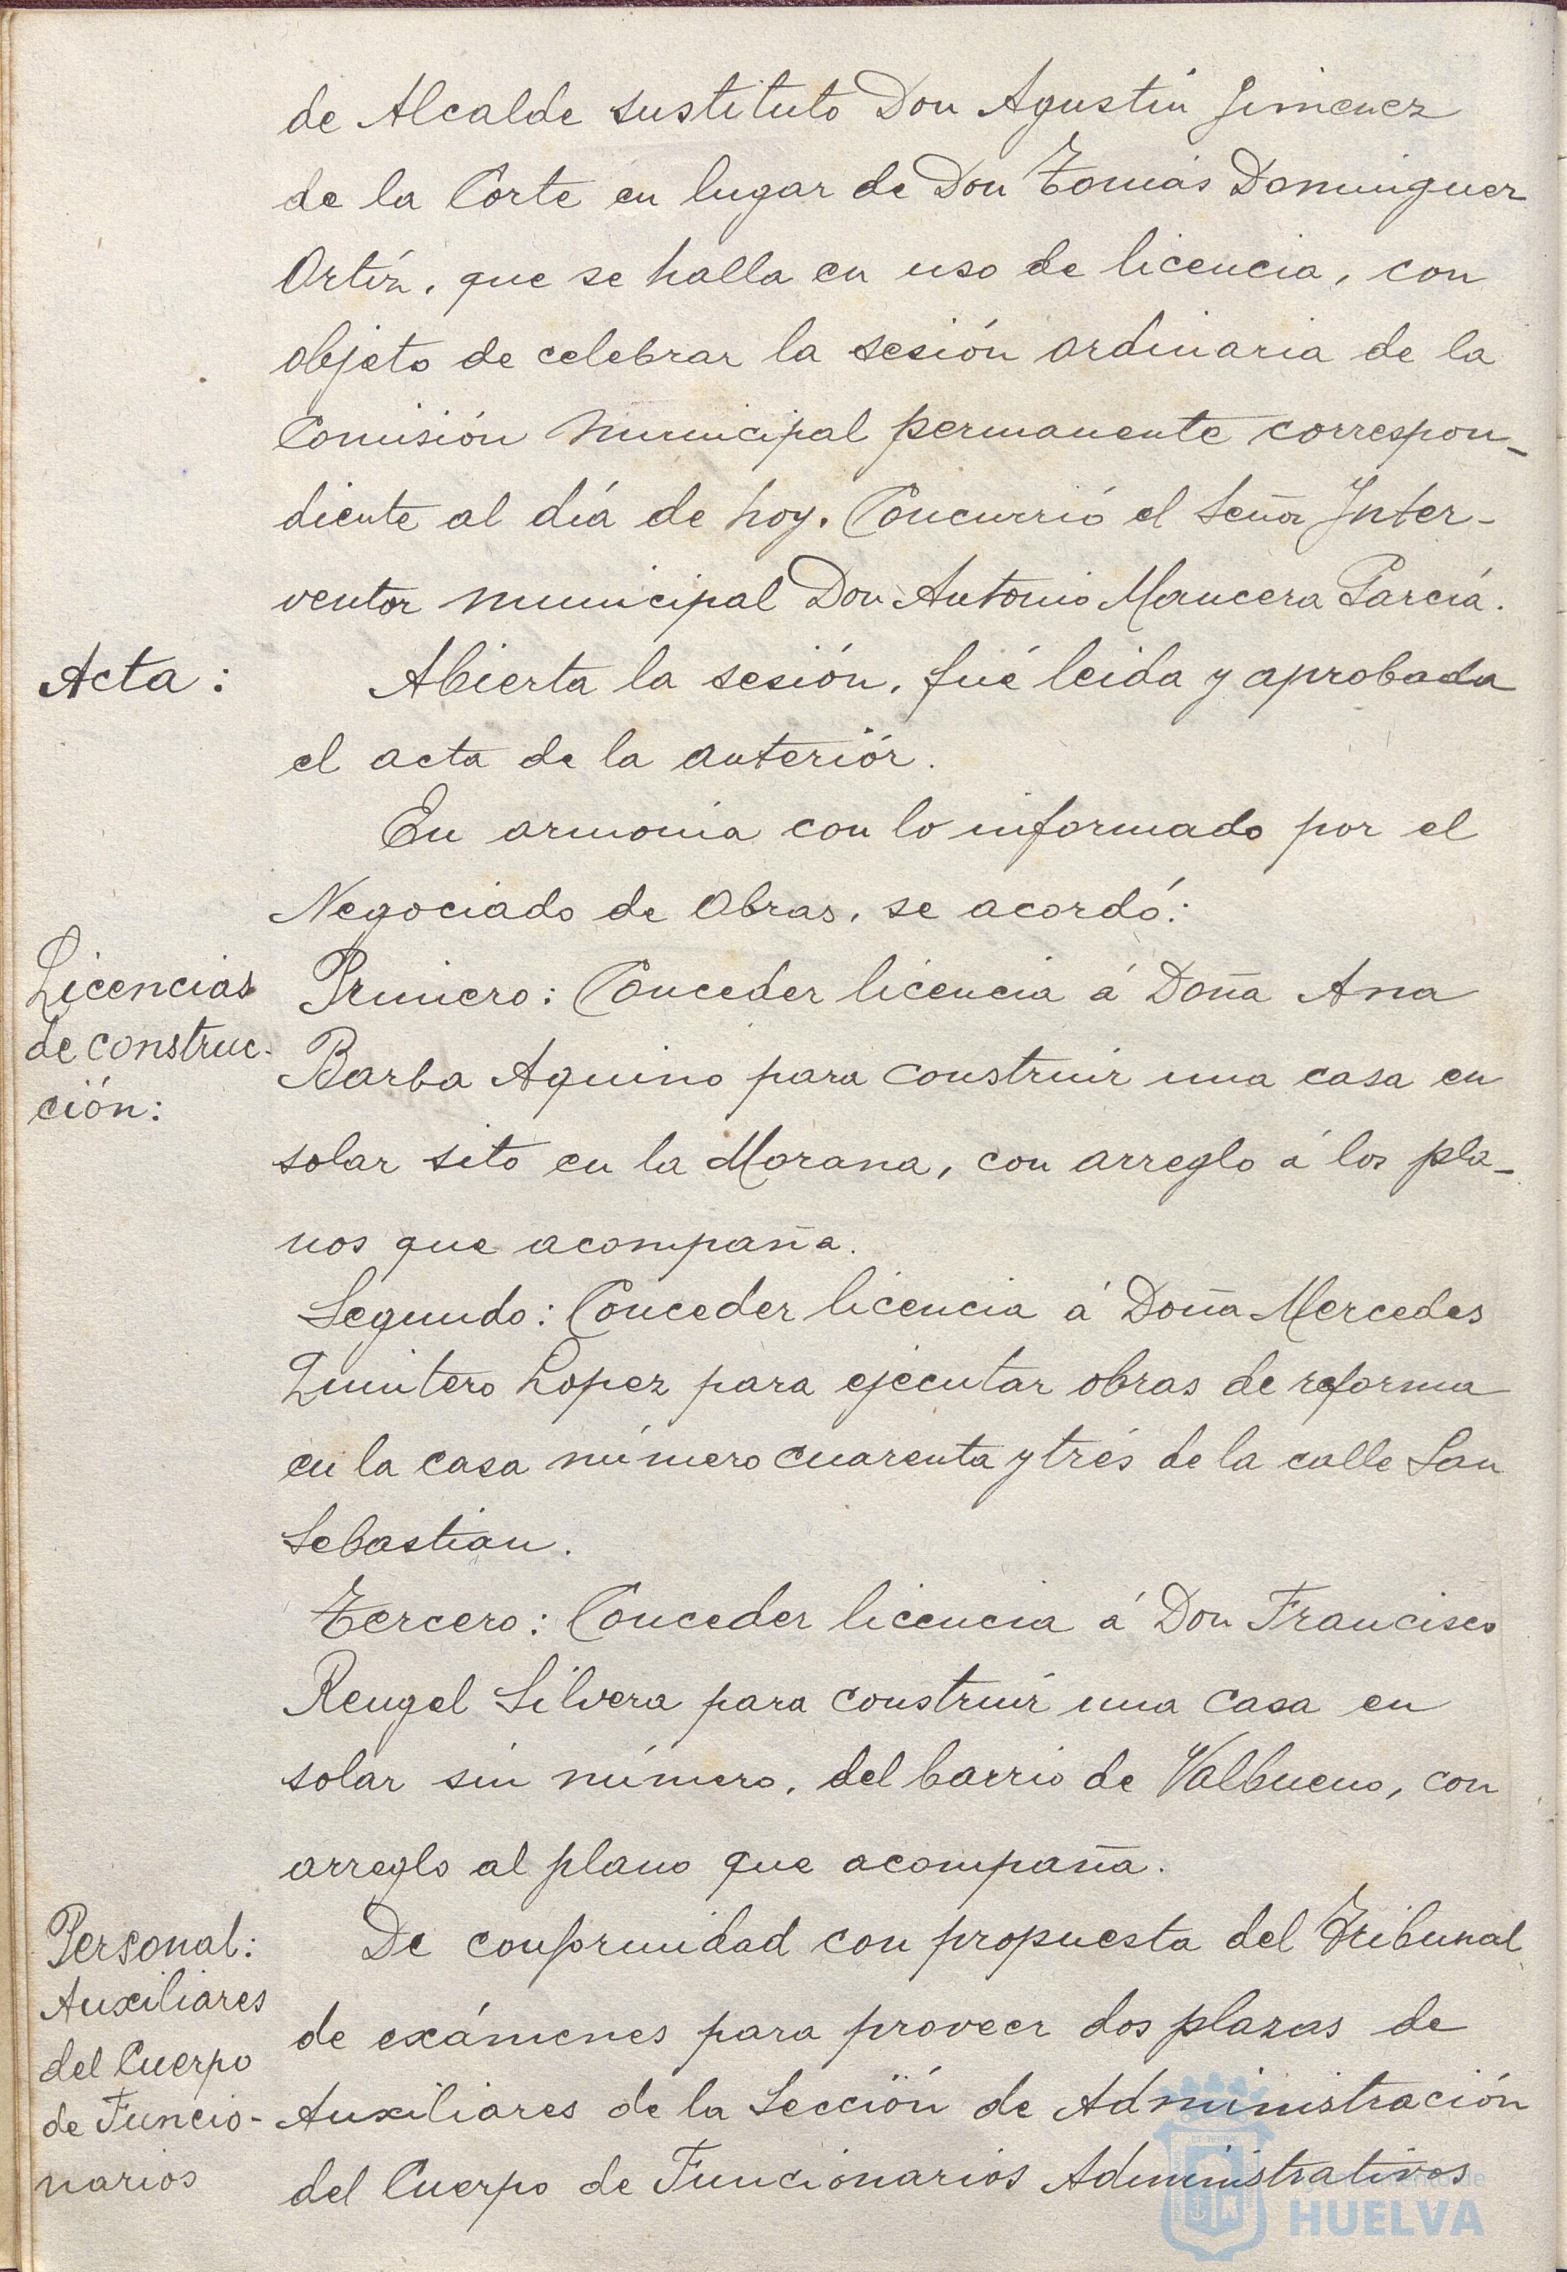 de Alcalde sustituto Don Agustín Jimenez
de la Corte en lugar de Don Tomás Dominguez
Ortíz, que se halla en uso de licencia, con
objeto de celebrar la sesión ordinaria de la
Comisión Municipal permanente correspon-
diente al día de hoy. Concurrió el Señor Inter-
ventor municipal Don Antonio Mancera García.
Acta:
Abierta la sesión, fué leida y aprobada
el acta de la anteriór.
En armonía con lo informado por el
Negociado de Obras, se acordó:
Licencias
de construc-
ción:
Primero: Conceder licencia á Doña Ana
Barba Aquino para construir una casa en
solar sito en la Morana, con arreglo á los pla-
nos que acompaña.
Segundo: Conceder licencia á Doña Mercedes
Quintero Lopez para ejecutar obras de reforma
en la casa número cuarenta y trés de la calle San
Sebastian.
Tercero: Conceder licencia á Don Francisco
Rengel Silvera para construir una casa en
solar sin número, del barrio de Valbueno, con
arreglo al plano que acompaña.
Personal:
Auxiliares
del Cuerpo
de Funcio-
narios
De conformidad con propuesta del Tribunal
de exámenes para proveer dos plazas de
Auxiliares de la Sección de Administración
del Cuerpo de Funcionarios Administrativos
Ayuntamiento de
HUELVA